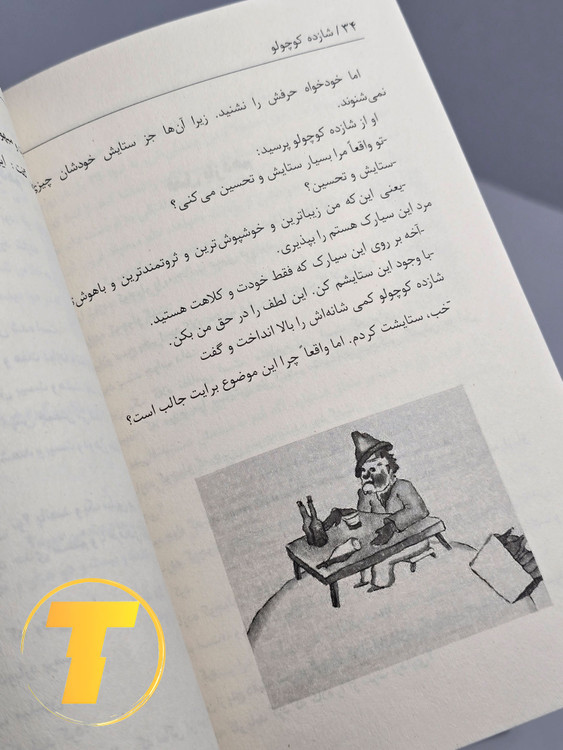 ۳۴ / شازده کوچولو
اما خودخواه حرفش را نشنید. زیرا آن‌ها جز ستایش خودشان چیزی
نمی‌شنوند.
او از شازده کوچولو پرسید:
-تو واقعاً مرا بسیار ستایش و تحسین می‌کنی؟
-ستایش و تحسین؟
-یعنی این‌که من زیباترین و خوشپوش‌ترین و ثروتمندترین و باهوش‌تر
مرد این سیارک هستم را بپذیری.
-آخه بر روی این سیارک که فقط خودت و کلاهت هستید.
-با وجود این ستایشم کن. این لطف را در حق من بکن.
شازده کوچولو کمی شانه‌اش را بالا انداخت و گفت
-خب، ستایشت کردم. اما واقعاً چرا این موضوع برایت جالب است؟
T